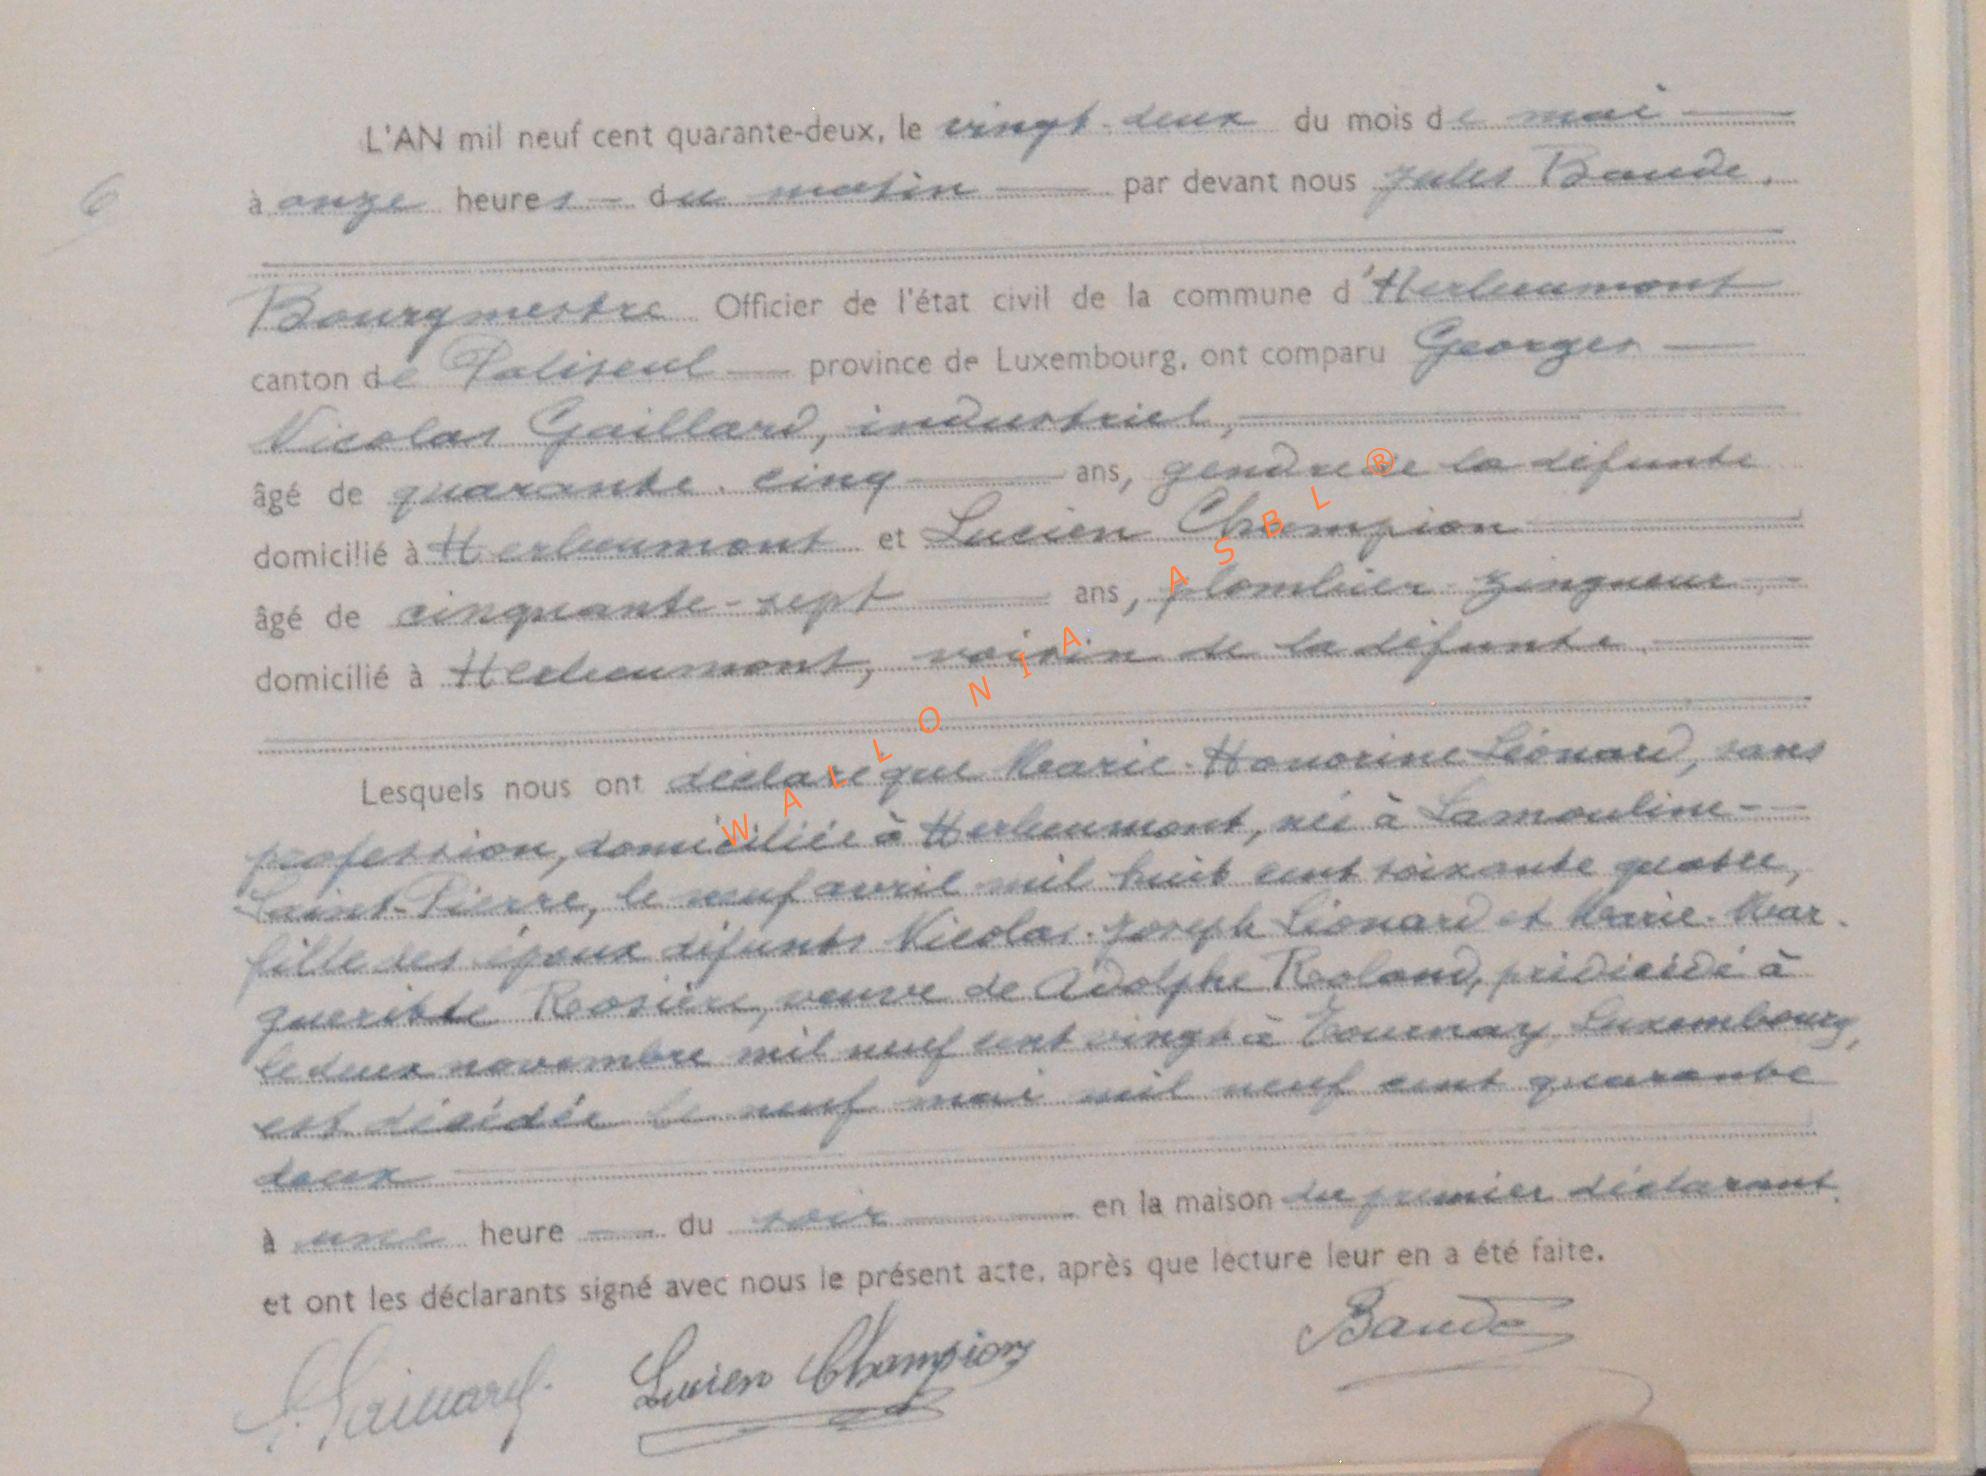 L'AN mil neuf cent quarante-deux, le vingt-deux du mois de mai
6
à onze heures du matin par devant nous Jules Baude,
Bourgmestre Officier de l'état civil de la commune d'Herbeumont
canton de Paliseul province de Luxembourg, ont comparu Georges
Nicolas Gaillard, industriel,
âgé de quarante-cinq ans, gendre de la défunte
domicilié à Herbeumont et Lucien Champion
âgé de cinquante-sept ans, plombier-zingueur
domicilié à Herbeumont, voisin de la défunte
Lesquels nous ont déclaré que Marie-Honorine Léonard, sans
profession, domiciliée à Herbeumont, née à Lamouline-
Saint-Pierre, le neuf avril mil huit cent soixante quatre,
fille des époux défunts Nicolas-Joseph Léonard et Marie-Mar-
gueritte Rosière, veuve de Adolphe Roland, prédécédé à
le deux novembre mil neuf cent vingt à Tournay, Luxembourg,
est décédée le neuf mai mil neuf cent quarante
deux
à une heure du soir en la maison du premier déclarant.
et ont les déclarants signé avec nous le présent acte, après que lecture leur en a été faite.
G. Gaillard. Lucien Champion Baude
WALLONIA ASBL ®